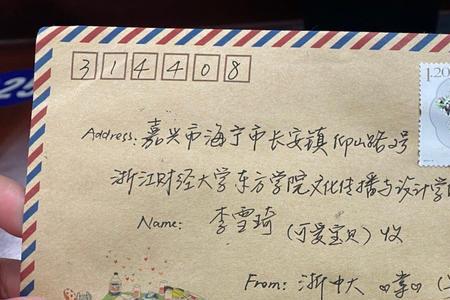 314408
1.20
25
Address: 嘉兴市海宁市长安镇仰山路2号
浙江财经大学东方学院文化传播与设计学
Name: 李雪琦 (可爱宝贝) 收
From: 浙中大